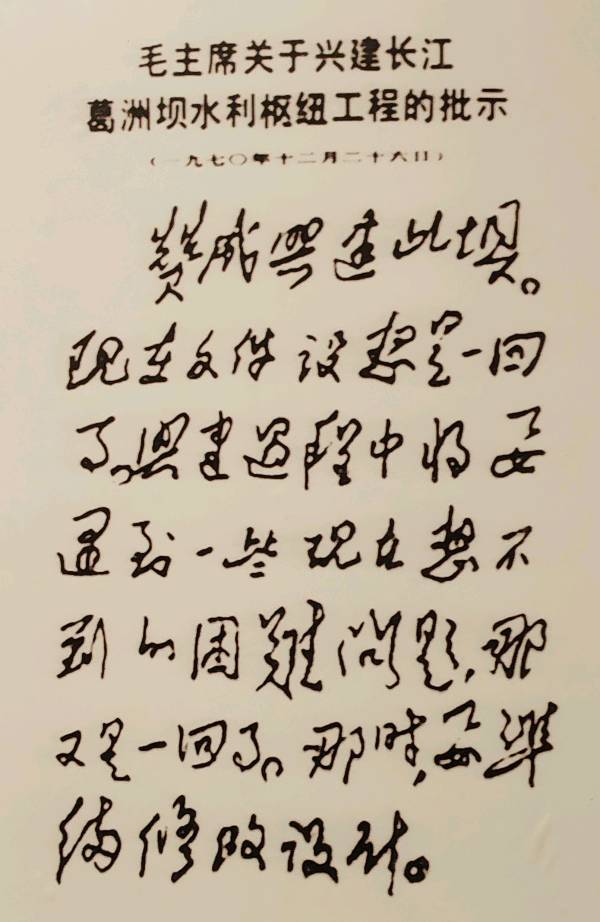 毛主席关于兴建长江
葛洲坝水利枢纽工程的批示
(一九七〇年十二月二十六日)
赞成兴建此坝。
现在文件设想是一回
事。兴建过程中将要
遇到一些现在想不
到的困难问题，那
又是一回事。那时，要准
备修改设计。